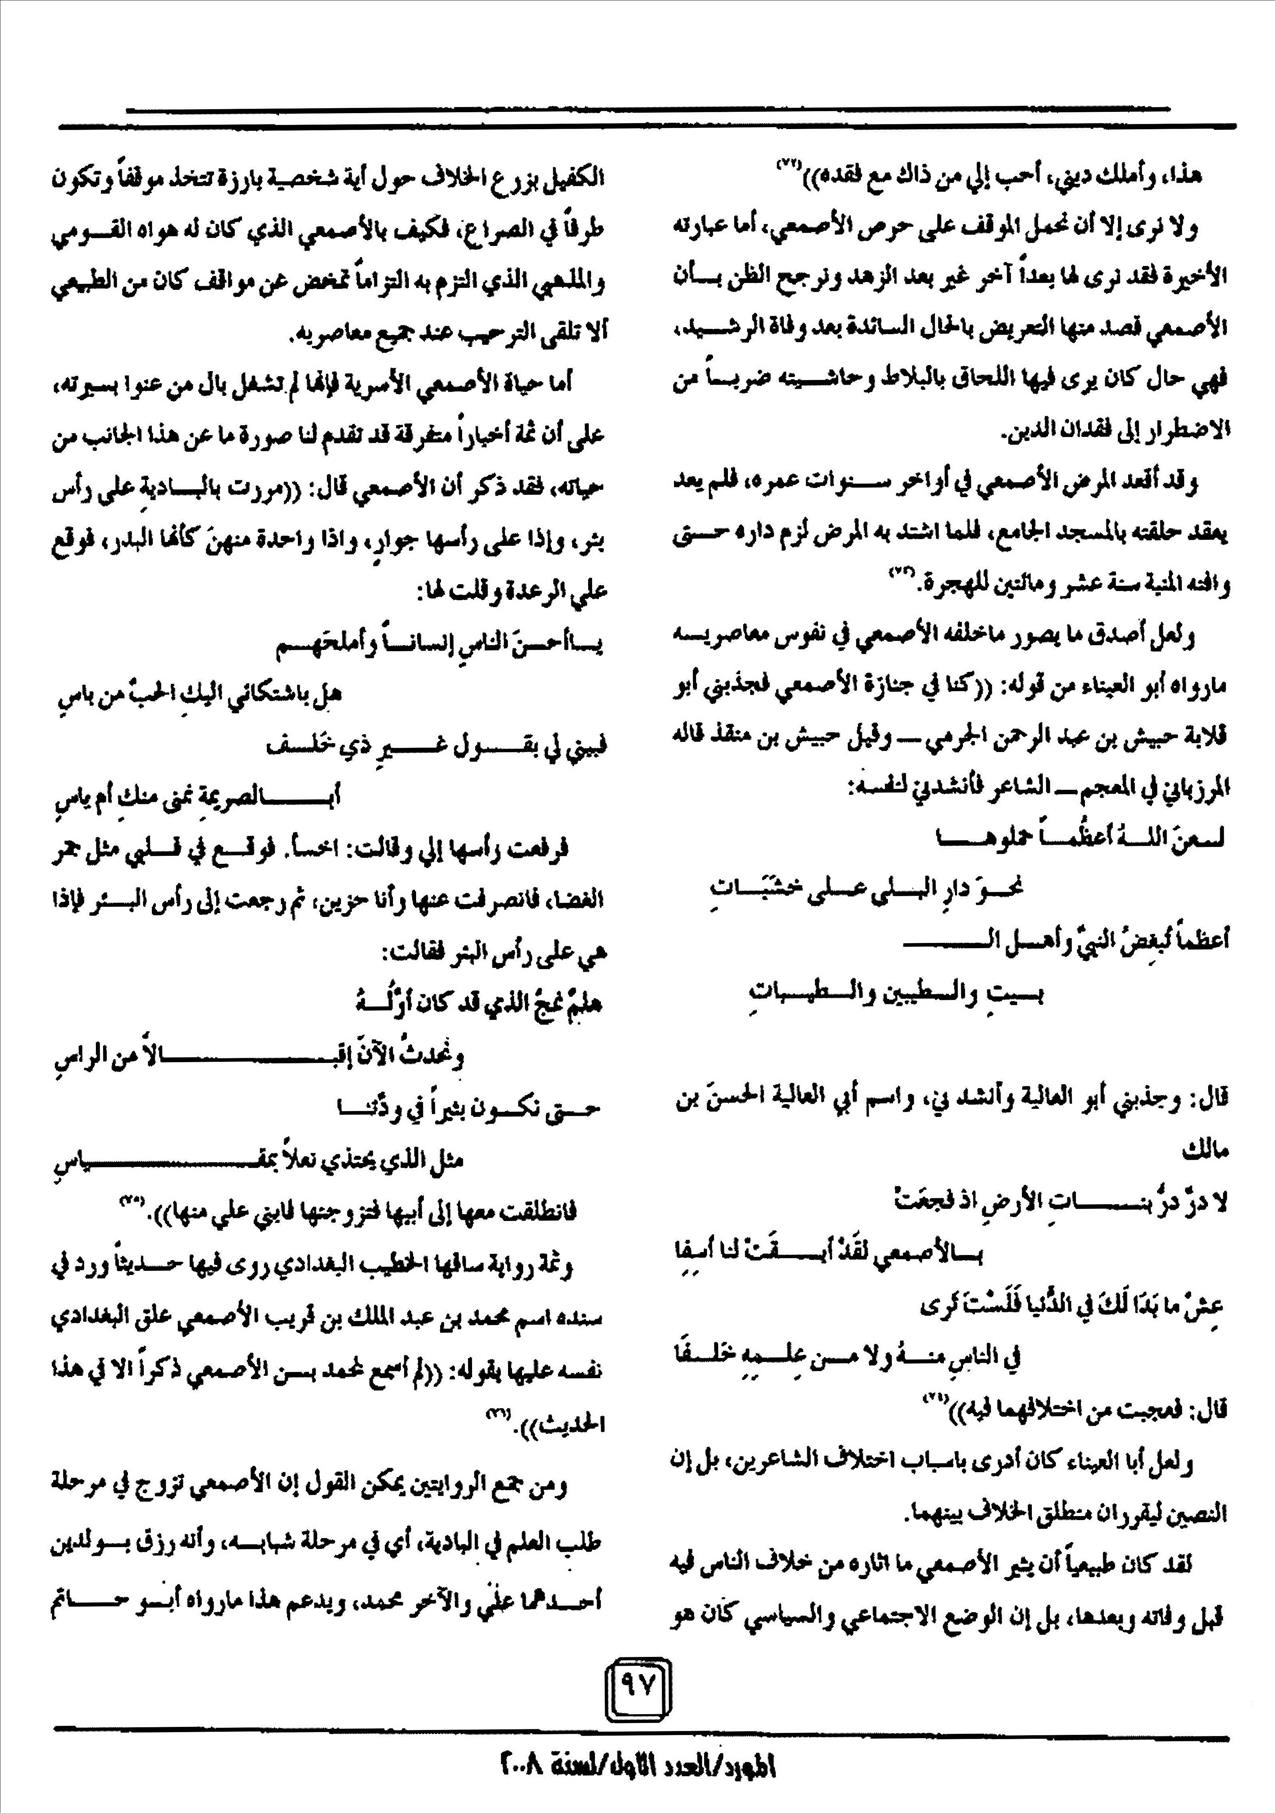 هذا، وأملك ديني، أحب إلي من ذاك مع فقده))(٧٢)
ولا نرى إلا أن نحمل الموقف على حرص الأصمعي، أما عبارته
الأخيرة فقد نرى لها بعداً آخر غير بعد الزهد ونرجح الظن بـأن
الأصمعي قصد منها التعريض بالحال السائدة بعد وفاة الرشيد،
فهي حال كان يرى فيها اللحاق بالبلاط وحاشيته ضرباً من
الاضطرار إلى فقدان الدين.
وقد أقعد المرض الأصمعي في أواخر سنوات عمره، فلم يعد
يعقد حلقته بالمسجد الجامع، فلما اشتد به المرض لزم داره حتى
وافته المنية سنة عشر ومائتين للهجرة.(٧٣)
ولعل أصدق ما يصور ماخلفه الأصمعي في نفوس معاصريه
مارواه أبو العيناء من قوله: ((كنا في جنازة الأصمعي فجذبني أبو
قلابة حبيش بن عبد الرحمن الجرمي ــ وقيل حبيش بن منقذ قاله
المرزباني في المعجم ــ الشاعر فأنشدني لنفسه:
لعنَ اللهُ أعظُماً حملوها
نحوَ دارِ البلى على خشَبَاتِ
أعظماً تُبغِضُ النبيَّ وأهل الــــ
ـبيتِ والطيبين والطيباتِ
قال: وجذبني أبو العالية وأنشدني، واسم أبي العالية الحسنَ بن
مالك
لا درَّ درُّ بناتِ الأرضِ اذ فجعَتْ
بالأصمعي لقَدْ أبقَتْ لنا أسِفا
عِشْ ما بَدَا لَكَ في الدُّنيا فَلَسْتَ تَرى
في الناسِ منهُ ولا من عِلمِهِ خَلفَا
قال: فعجبت من اختلافهما فيه))(٧٤)
ولعل أبا العيناء كان أدرى باسباب اختلاف الشاعرين، بل إن
النصين ليقرران منطلق الخلاف بينهما.
لقد كان طبيعياً أن يثير الأصمعي ما اثاره من خلاف الناس فيه
قبل وفاته وبعدها، بل إن الوضع الاجتماعي والسياسي كان هو
الكفيل بزرع الخلاف حول أية شخصية بارزة تتخذ موقفاً وتكون
طرفاً في الصراع، فكيف بالأصمعي الذي كان له هواه القومي
والمذهبي الذي التزم به التزاماً تمخض عن مواقف كان من الطبيعي
ألا تلقى الترحيب عند جميع معاصريه.
أما حياة الأصمعي الأسرية فإنها لم تشغل بال من عنوا بسيرته،
على أن ثمة أخباراً متفرقة قد تقدم لنا صورة ما عن هذا الجانب من
حياته، فقد ذكر أن الأصمعي قال: ((مررت بالباديةِ على رأس
بئر، وإذا على رأسها جوارٍ، واذا واحدة منهنَ كأنها البدر، فوقع
علي الرعدة وقلت لها:
يـاأحسنَ الناسِ إنساناً وأملحَهم
هل باشتكائي اليكِ الحبَّ من باسِ
فبيني لي بقول غيرِ ذي خَلف
أبالصريمةِ نمنى منكِ أم ياسِ
فرفعت رأسها إلي وقالت: اخسأ. فوقع في قلبي مثل جمر
الغضا، فانصرفت عنها وأنا حزين، ثم رجعت إلى رأس البئر فإذا
هي على رأس البئر فقالت:
هلمَّ نمحُ الذي قد كان أوَّلُهُ
ونحدثُ الآنَ إقبالاً من الراسِ
حتى نكون بثيراً في ودِّنا
مثل الذي يحتذي نعلاً بمقياسِ
فانطلقت معها إلى أبيها فتزوجتها فابني علي منها)).(٧٥)
وثمة رواية ساقها الخطيب البغدادي روى فيها حديثاً ورد في
سنده اسم محمد بن عبد الملك بن قريب الأصمعي علق البغدادي
نفسه عليها بقوله: ((لم أسمع لمحمد بن الأصمعي ذكراً الا في هذا
الحديث)).(٧٦)
ومن جمع الروايتين يمكن القول إن الأصمعي تزوج في مرحلة
طلب العلم في البادية، أي في مرحلة شبابه، وأنه رزق بولدين
أحدهما عليّ والآخر محمد، ويدعم هذا مارواه أبو حاتم
٩٧
المورد/العدد الأول/لسنة ٢٠٠٨